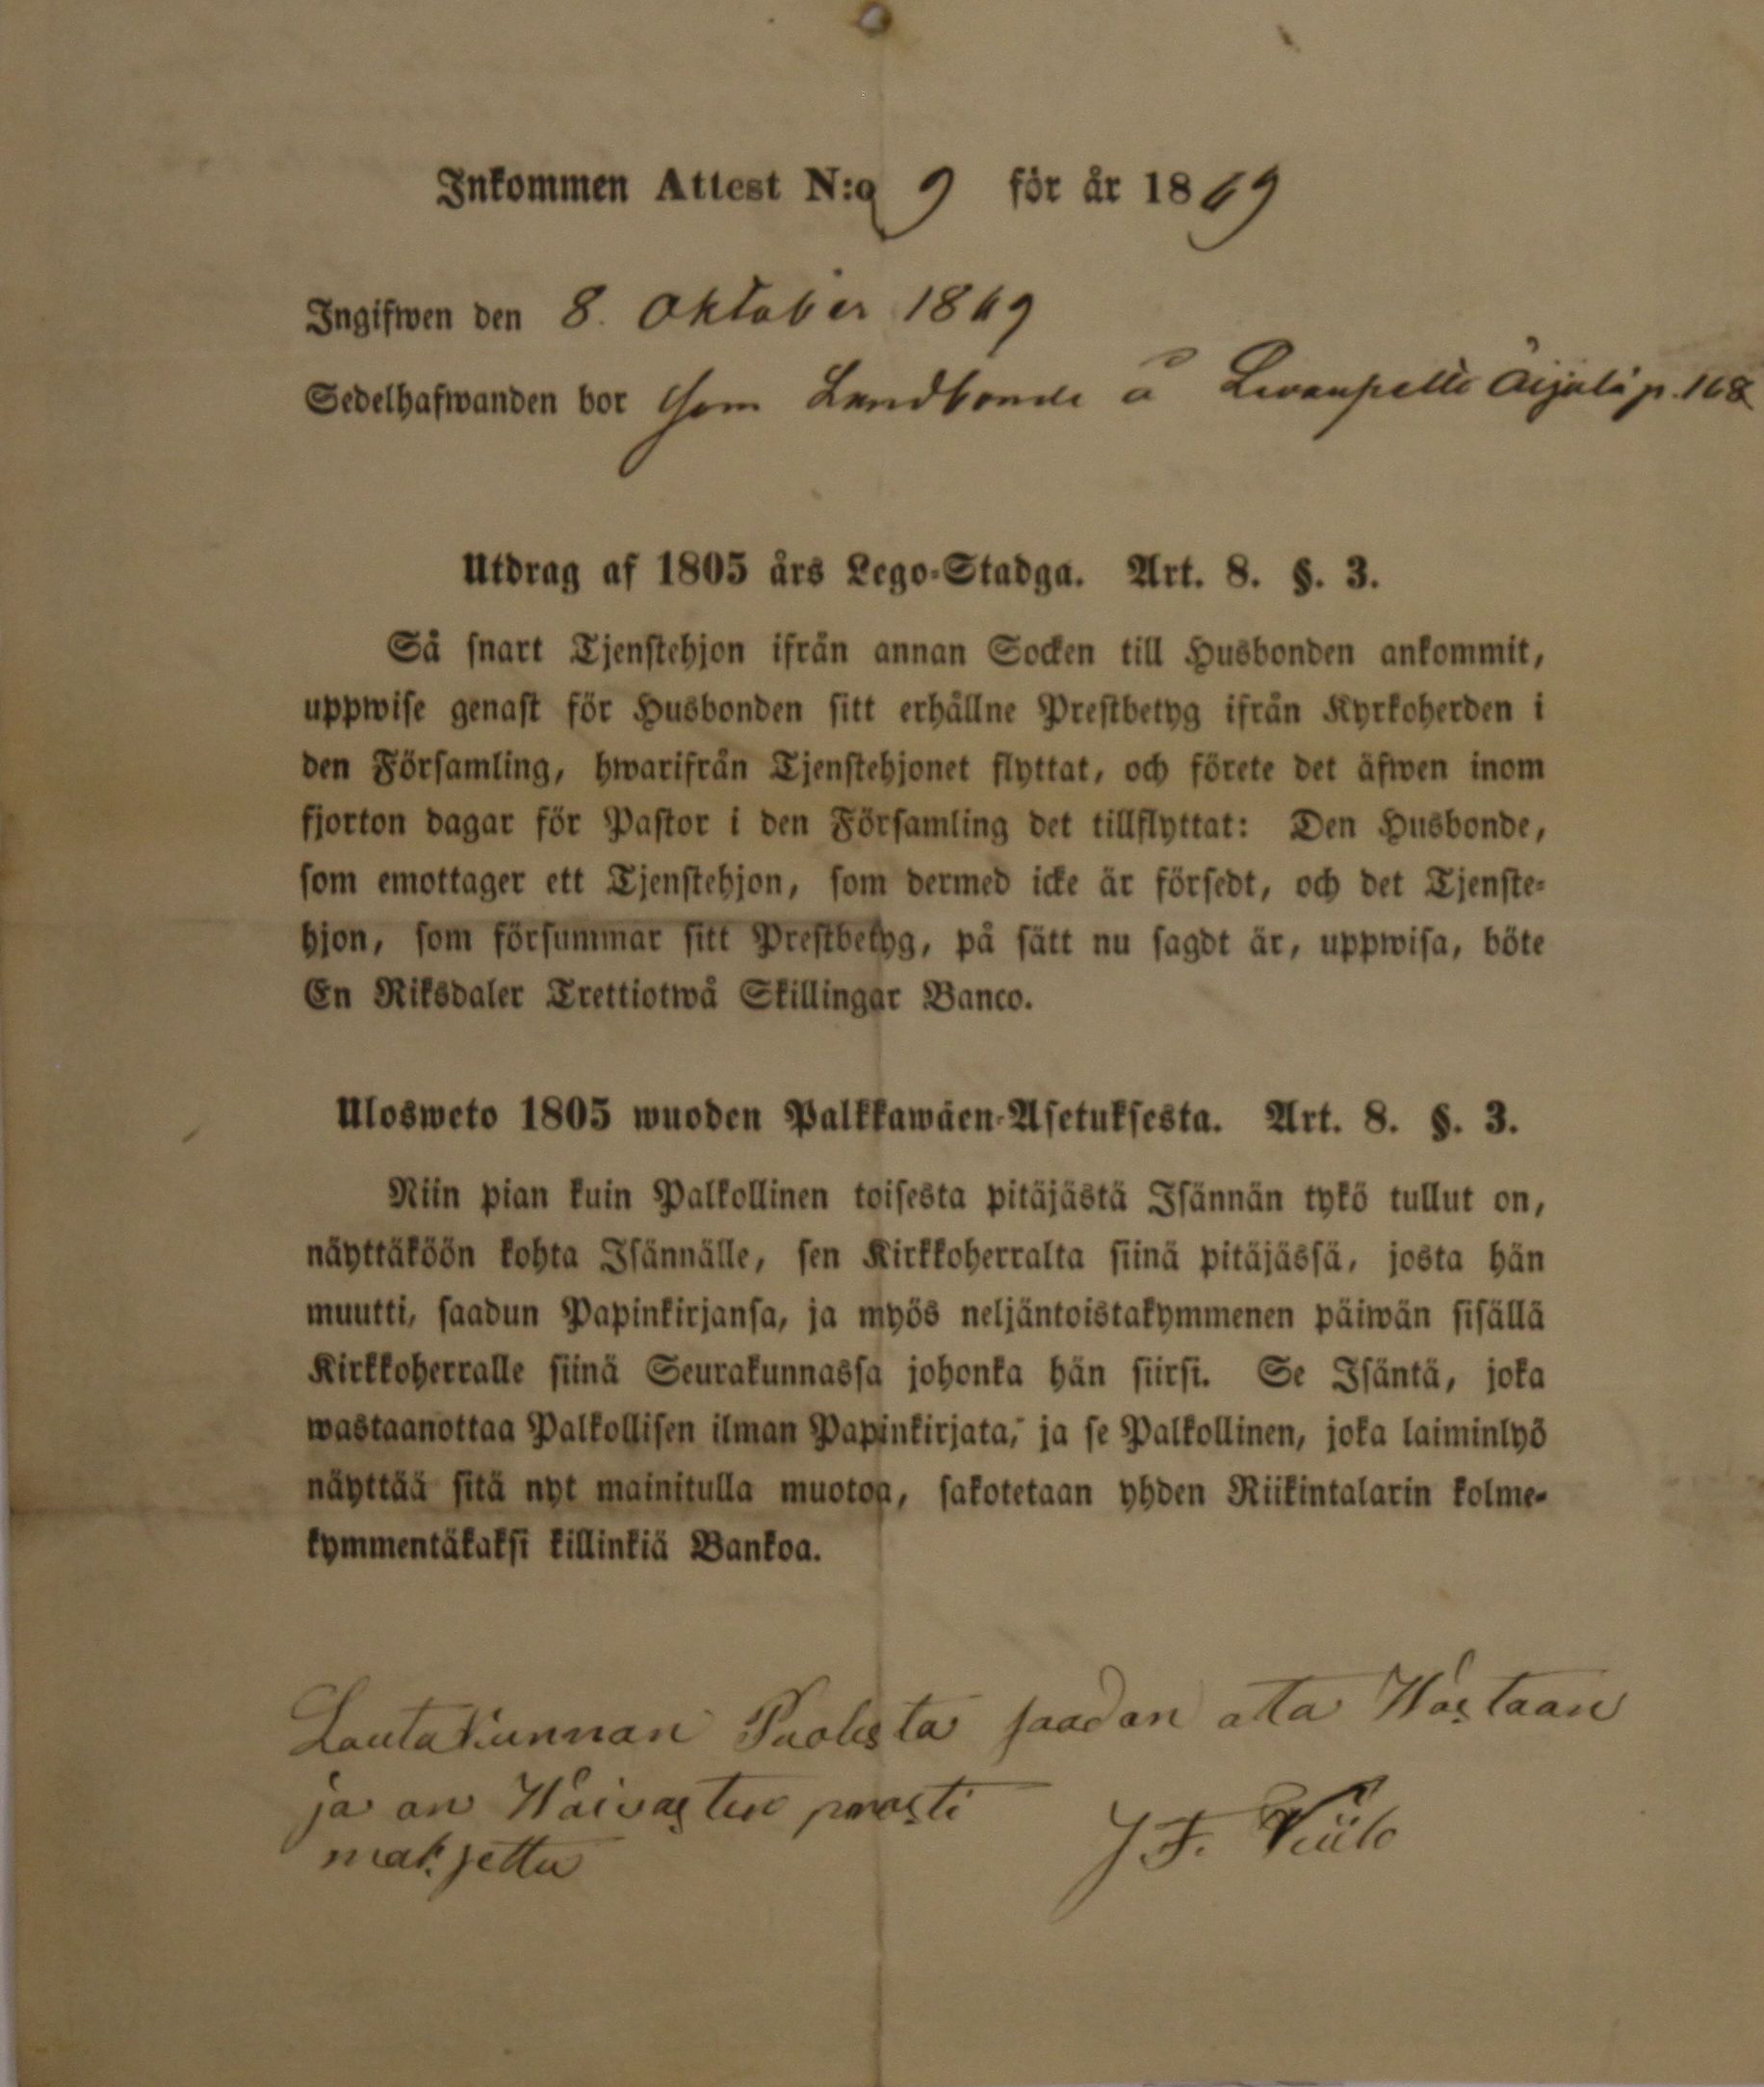 Inkommen Attest N:o 9 för år 1869
Ingifwen den 8. Oktober 1869
Sedelhafwanden bor som Landbonde å Äijälä p. 168
Utdrag af 1805 års Lego-Stadga. Art. 8. §. 3.
Så snart Tjenstehjon ifrån annan Socken till Husbonden ankommit,
uppwise genast för Husbonden sitt erhållne Prestbetyg ifrån Kyrkoherden i
den Församling, hwarifrån Tjenstehjonet flyttat, och förete det äfwen inom
fjorton dagar för Pastor i den Församling det tillflyttat: Den Husbonde,
som emottager ett Tjenstehjon, som dermed icke är försedt, och det Tjenste-
hjon, som försummar sitt Prestbetyg, på sätt nu sagdt är, uppwisa, böte
En Riksdaler Trettiotwå Skillingar Banco.
Ulosweto 1805 wuoden Palkkawäen-Asetuksesta. Art. 8. §. 3.
Niin pian kuin Palkollinen toisesta pitäjästä Isännän tykö tullut on,
näyttäköön kohta Isännälle, sen Kirkkoherralta siinä pitäjässä, josta hän
muutti, saadun Papinkirjansa, ja myös neljäntoistakymmenen päiwän sisällä
Kirkkoherralle siinä Seurakunnassa johonka hän siirsi. Se Isäntä, joka
wastaanottaa Palkollisen ilman Papinkirjata, ja se Palkollinen, joka laiminlyö
näyttää sitä nyt mainitulla muotoa, sakotetaan yhden Riikintalarin kolme-
kymmentäkaksi killinkiä Bankoa.
Lautakunnan Puolesta saadan otta Wastaan
ja on Waivasten
maksettu J. F.